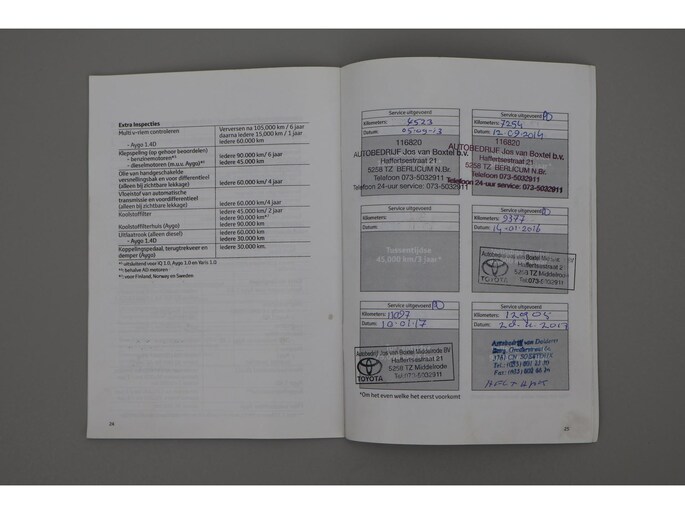 Extra Inspecties
Multi v-riem controleren
Verversen na 105.000 km / 6 jaar
daarna iedere 15.000 km / 1 jaar
- Aygo 1.4D
iedere 60.000 km
Klepspeling (op gehoor beoordelen)
- benzinemotoren*¹
iedere 90.000 km/ 6 jaar
- dieselmotoren (m.u.v. Aygo)*²
iedere 45.000 km
Olie van handgeschakelde
versnellingsbak en voor differentieel
(alleen bij zichtbare lekkage)
iedere 60.000 km/ 4 jaar
Vloeistof van automatische
transmissie en voordifferentieel
(alleen bij zichtbare lekkage)
iedere 60.000 km/ 4 jaar
Koolstoffilter
iedere 45.000 km/ 2 jaar
iedere 90.000 km*³
Koolstoffilterhuis (Aygo)
iedere 90.000 km
Uitlaatrook (alleen diesel)
iedere 60.000 km
- Aygo 1.4D
iedere 30.000 km
Koppelingspedaal, terugtrekveer en
demper (Aygo)
iedere 30.000 km.
*¹ uitsluitend voor iQ 1.0, Aygo 1.0 en Yaris 1.0
*² behalve AD motoren
*³ voor Finland, Norway en Sweden
24
Service uitgevoerd
Kilometers: 4523
Datum: 05-09-13
116820
AUTOBEDRIJF Jos van Boxtel b.v.
Haffertsestraat 21
5258 TZ BERLICUM N.Br.
Telefoon 073-5032911
Telefoon 24-uur service: 073-5032911
Service uitgevoerd
Kilometers: 7254
Datum: 12-09-2014
116820
AUTOBEDRIJF Jos van Boxtel b.v.
Haffertsestraat 21
5258 TZ BERLICUM N.Br.
Telefoon 073-5032911
Telefoon 24-uur service: 073-5032911
Kilometers:
Datum:
Tussentijdse
45.000 km/3 jaar*
Service uitgevoerd
Kilometers: 9377
Datum: 14-01-2016
Autobedrijf Jos van Boxtel
Haffertsestraat 2
5258 TZ Middelrode
Tel:073-5032911
TOYOTA
Service uitgevoerd
Kilometers: 11097
Datum: 19-01-17
Autobedrijf Jos van Boxtel Middelrode BV
Haffertsestraat 21
5258 TZ Middelrode
Tel:073-5032911
TOYOTA
Service uitgevoerd
Kilometers:
Datum:
Autobedrijf van
*Om het even welke het eerst voorkomt
25